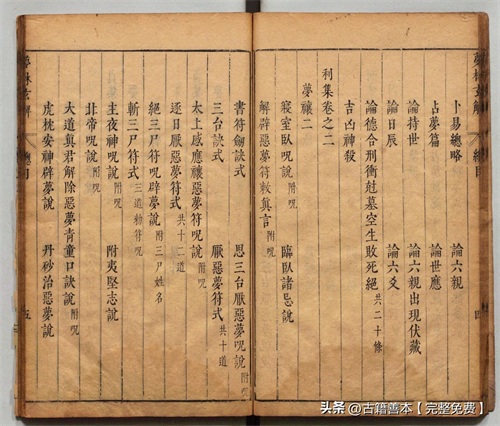 夢林玄解 總目 四
卜易總略 論六親
占夢篇 論世應
論持世 論六親出現伏藏
論日辰 論六爻
論德合刑衝尅墓空生敗死絕 共二十條
吉凶神殺
利集卷之二
夢禳二
寢室臥呪說 附呪 臨臥諸忌說
解辟惡夢符敕真言 附呪
書符劒訣式 恩三台厭惡夢呪說 附呪
三台訣式 厭惡夢符式 共十道
太上感應禳惡夢符呪說 附呪
逐日厭惡夢符式 共十二道
絕三尸符呪辟夢說 附三尸姓名
斬三尸符式 三道勅符呪
主夜神呪說 附呪 附夷堅志說
北帝呪說 附呪
大道真君解除惡夢青童口訣說 附呪
虎枕安神辟夢說 丹砂治惡夢說
夢林玄解 總目 五
头条 @古籍善本【完整免费】